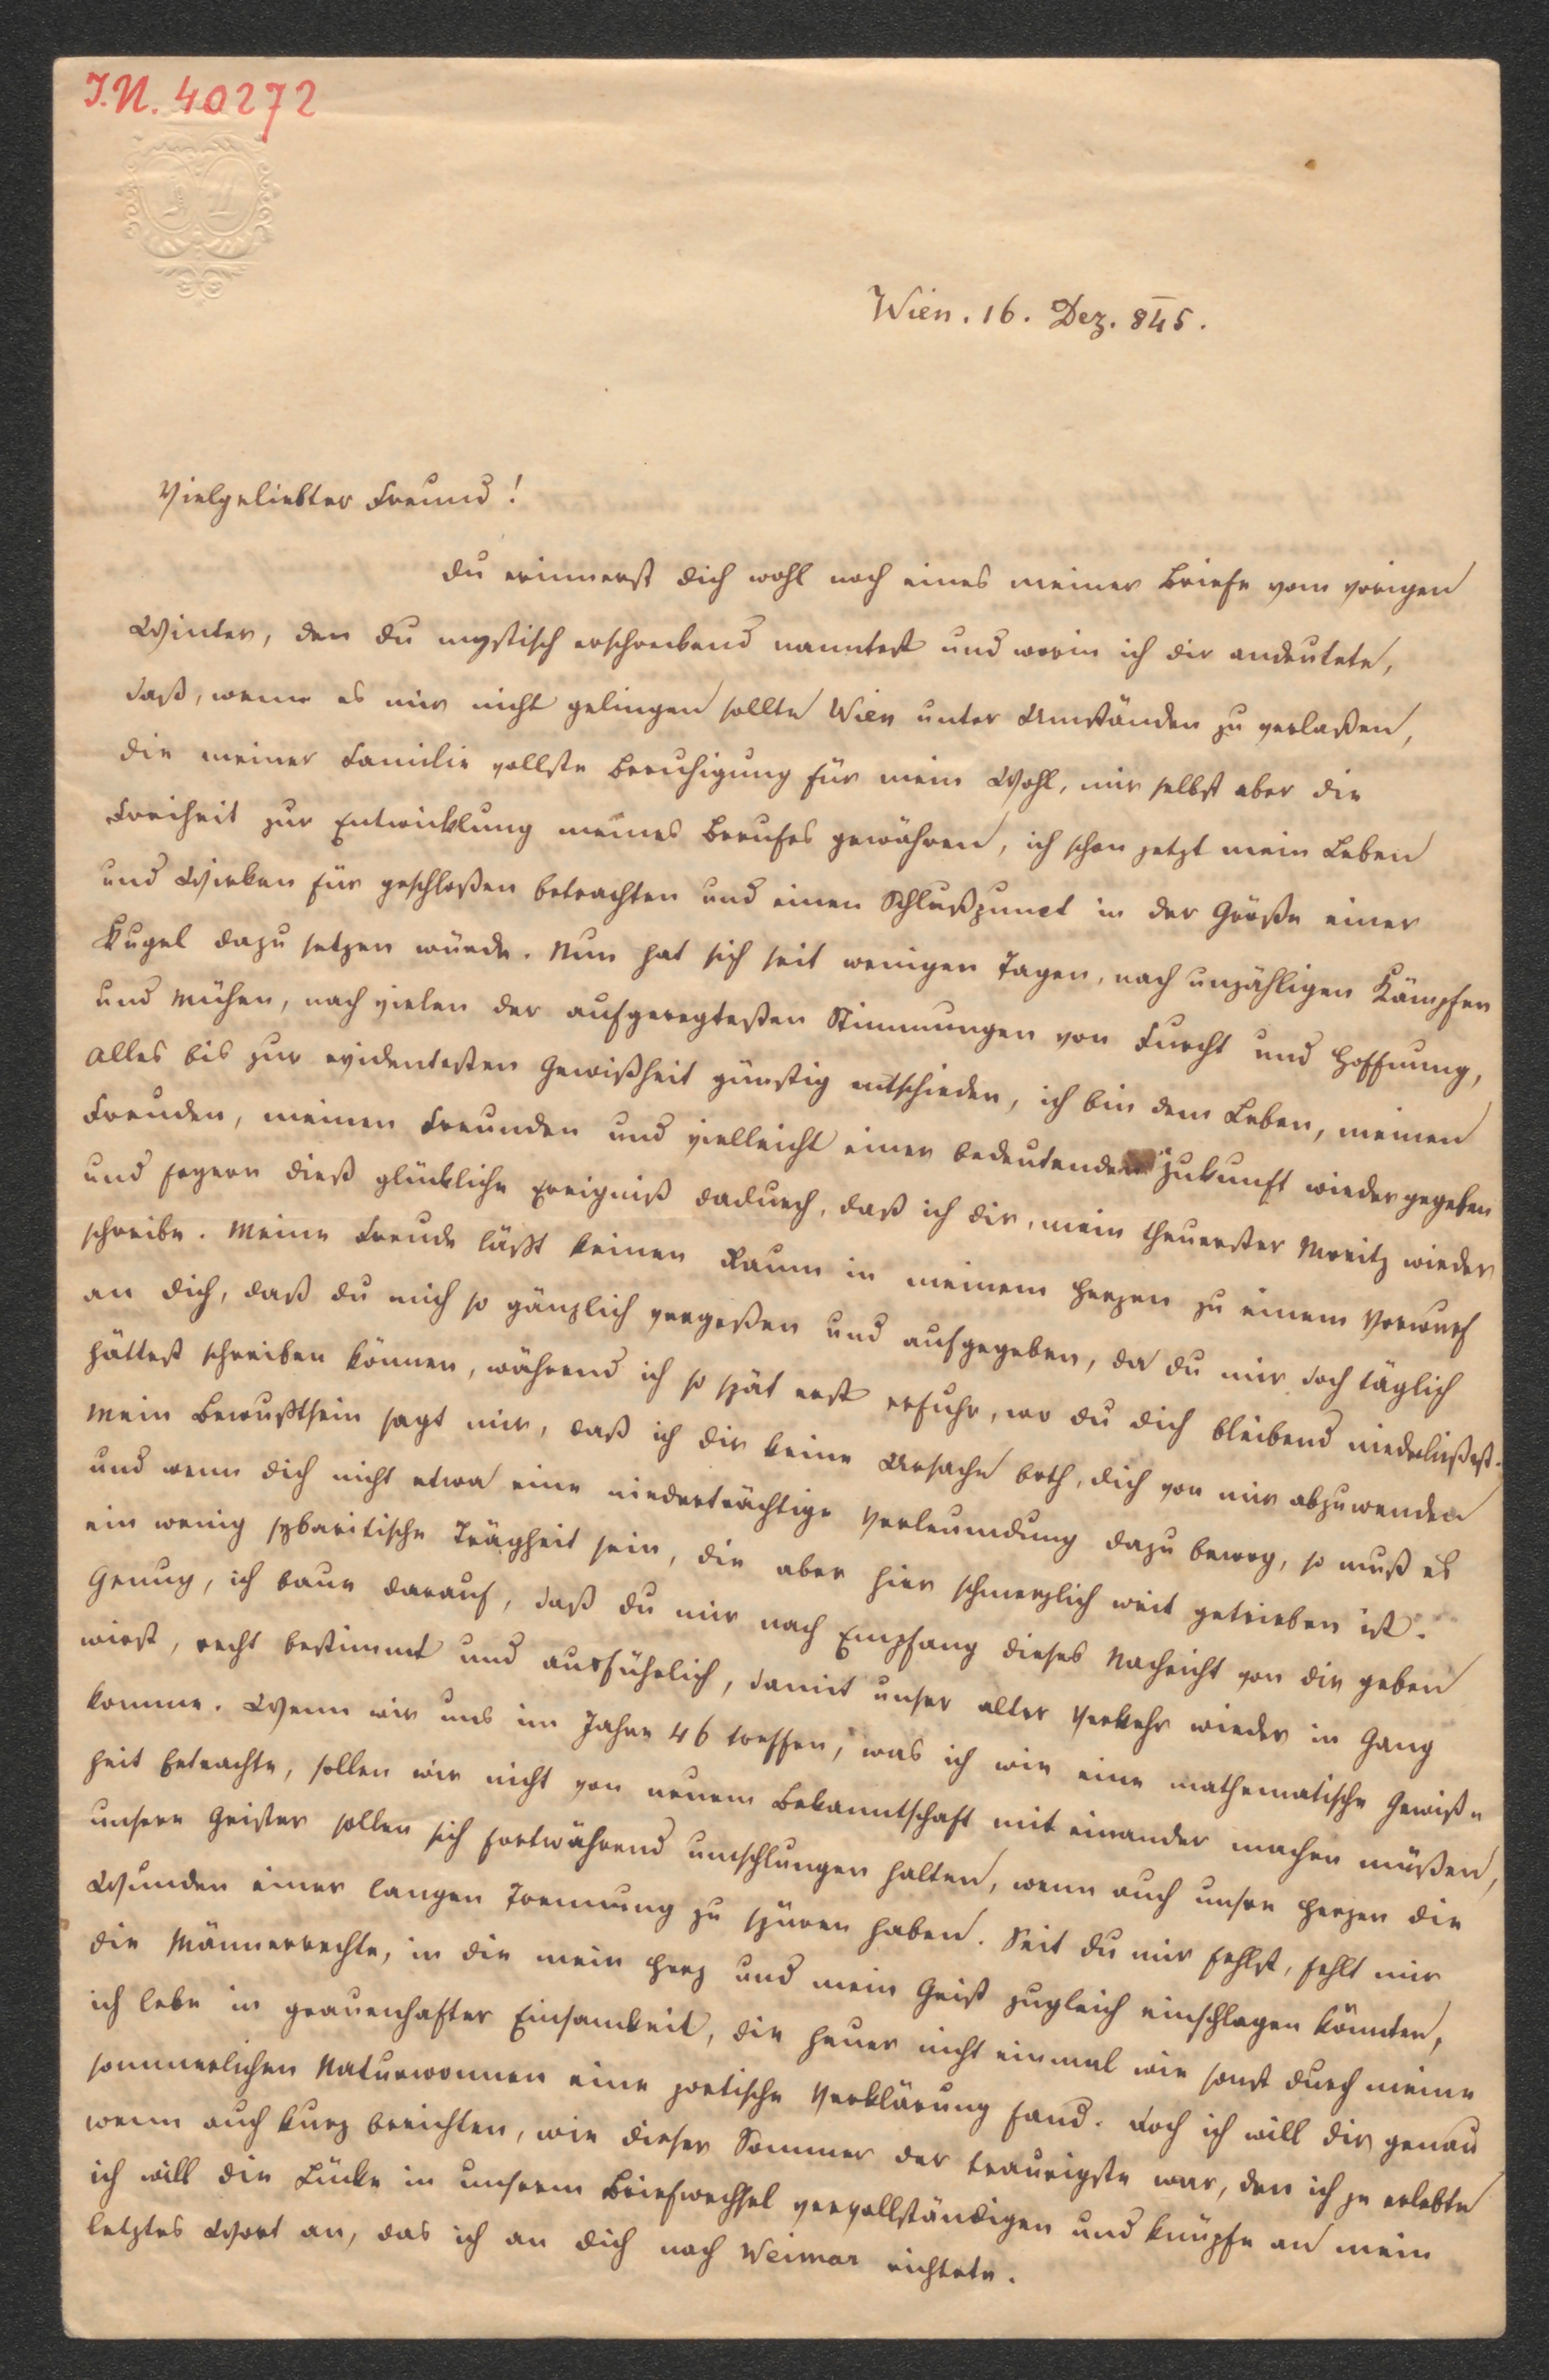 J.N. 40272
Wien. 16. Dez. 845.
Vielgeliebter Freund!
Du erinnerst dich wohl noch eines meiner Briefe vom vorigen
Winter, den du mystisch erschreckend nanntest und worin ich dir andeutete,
daß, wenn es mir nicht gelingen sollte Wien unter Umständen zu verlaßen,
die meiner Familie vollste Beruhigung für mein Wohl, mir selbst aber die
Freiheit zur Entwicklung meines Berufes gewähren, ich schon jetzt mein Leben
und Wirken für geschloßen betrachten und einen Schlußpunct in der Größe einer
Kugel dazu setzen würde. Nun hat sich seit wenigen Tagen, nach unzähligen Kämpfen
und Mühen, nach vielen der aufgeregtesten Stimmungen von Furcht und Hoffnung,
alles bis zur evidentesten Gewißheit günstig entschieden, ich bin dem Leben, meinen
Freuden, meinen Freunden und vielleicht einer bedeutenden Zukunft wiedergegeben
und feyere dieß glückliche Ereigniß dadurch, daß ich dir, mein theuerster Moritz wieder
schreibe. Meine Freude läßt keinen Raum in meinem Herzen zu einem Vorwurf
an dich, daß du mich so gänzlich vergeßen und aufgegeben, da du mir doch täglich
hättest schreiben können, während ich so spät erst erfuhr, wo du dich bleibend niederließest.
Mein Bewußtsein sagt mir, daß ich dir keine Ursache both, dich von mir abzuwenden
und wenn dich nicht etwa eine niederträchtige Verleumdung dazu bewog, so muß es
ein wenig sybaritische Trägheit sein, die aber hier schmerzlich weit getrieben ist.
Genug, ich baue darauf, daß du mir nach Empfang dieses Nachricht von dir geben
wirst, recht bestimmt und ausführlich, damit unser alter Verkehr wieder in Gang
komme. Wenn wir uns im Jahre 46 treffen, was ich wie eine mathematische Gewiß=
heit betrachte, sollen wir nicht von neuem Bekanntschaft mit einander machen müßen,
unsere Geister sollen sich fortwährend umschlungen halten, wenn auch unsre Herzen die
Wunden einer langen Trennung zu spüren haben. Seit du mir fehlst, fehlt mir
die Männerrechte, in die mein Herz und mein Geist zugleich einschlagen könnten,
ich lebe in grauenhafter Einsamkeit, die heuer nicht einmal wie sonst durch meine
sommerlichen Naturwonnen eine poetische Verklärung fand. Doch ich will dir genau
wenn auch kurz berichten, wie dieser Sommer der traurigste war, den ich je erlebte
ich will die Lücke in unserem Briefwechsel vervollständigen und knüpfe an mein
letztes Wort an, das ich an dich nach Weimar richtete.